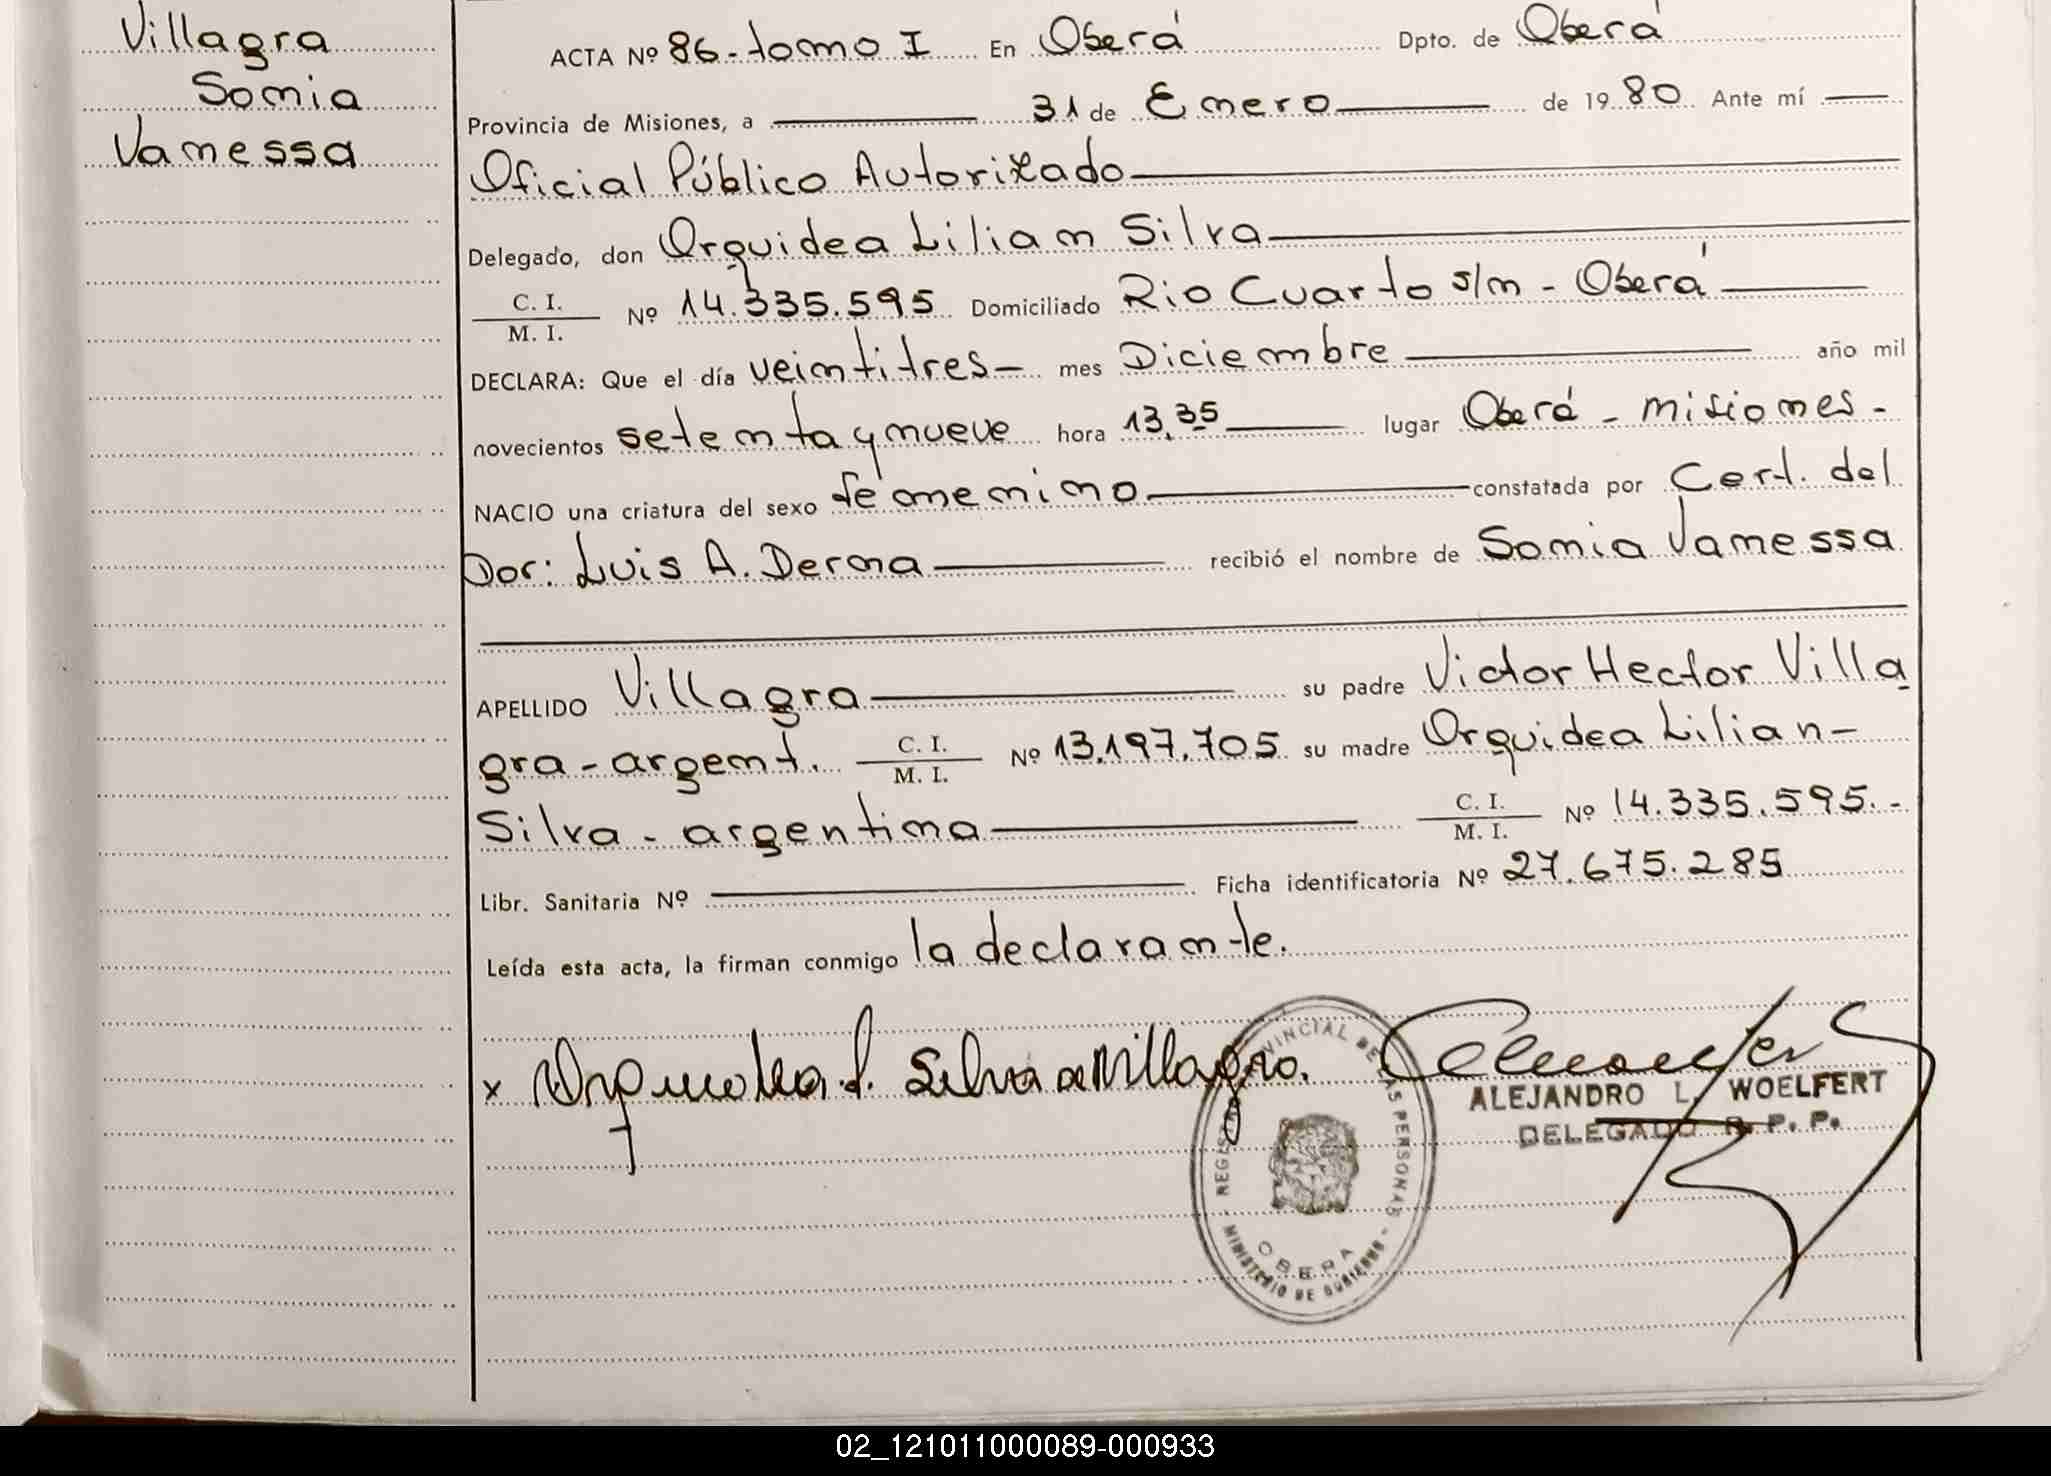 Villagra
Sonia
Vanessa
ACTA Nº 86-tomo I En Oberá Dpto. de Oberá
Provincia de Misiones, a 31 de Enero de 1980 Ante mí
Oficial Público Autorizado
Delegado, don Orquidea Lilian Silva
C. I.
M. I. Nº 14.335.595 Domiciliado Rio Cuarto s/n - Oberá
DECLARA: Que el día veintitres- mes Diciembre año mil
novecientos setenta y nueve hora 13,35 lugar Oberá - Misiones -
NACIO una criatura del sexo femenino constatada por Cert. del
Dor: Luis A. Derna recibió el nombre de Sonia Vanessa
APELLIDO Villagra su padre Victor Hector Villa
gra-argent. C. I.
M. I. Nº 13.197.705 su madre Orquidea Lilian-
Silva - argentina C. I.
M. I. Nº 14.335.595.-
Libr. Sanitaria Nº Ficha identificatoria Nº 27.675.285
Leída esta acta, la firman conmigo la declarante.
x Orquidea L. Silva de Villagra.
REGISTRO PROVINCIAL DE LAS PERSONAS
OBERA
MINISTERIO DE GOBIERNO
ALEJANDRO L. WOELFERT
DELEGADO R. P. P.
02_121011000089-000933